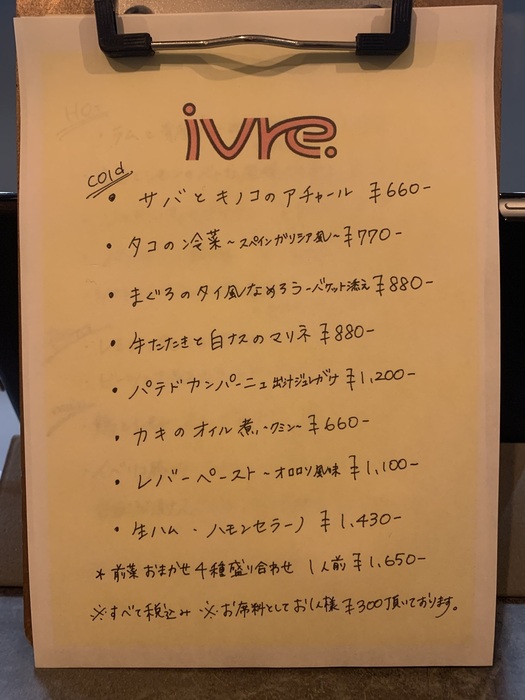 ivre.
cold
・ サバとキノコのアチャール ¥660-
・ タコの冷菜～スペインガリシア風～¥770-
・ まぐろのタイ風なめろう-バケット添え ¥880-
・ 牛たたきと白ナスのマリネ ¥880-
・ パテドカンパーニュ出汁ジュレがけ ¥1,200-
・ カキのオイル煮～クミン～¥660-
・ レバーペースト～オロロソ風味 ¥1,100-
・ 生ハム・ハモンセラーノ ¥1,430-
* 前菜おまかせ4種盛り合わせ 1人前 ¥1,650-
※すべて税込み ※お席料としてお1人様 ¥300頂いております。